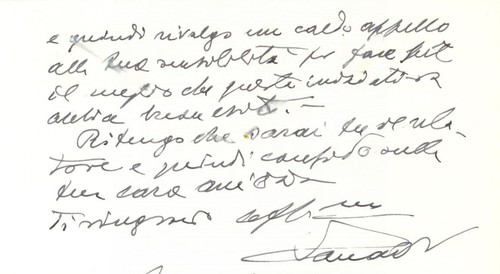 e quindi rivolgo un caldo appello
alla tua sensibilità per fare
il meglio che questa iniziativa
abbia buon esito. –
Ritengo che sarai tu il rela-
tore e quindi confido sulla
tua cara amicizia
Ti ringrazio